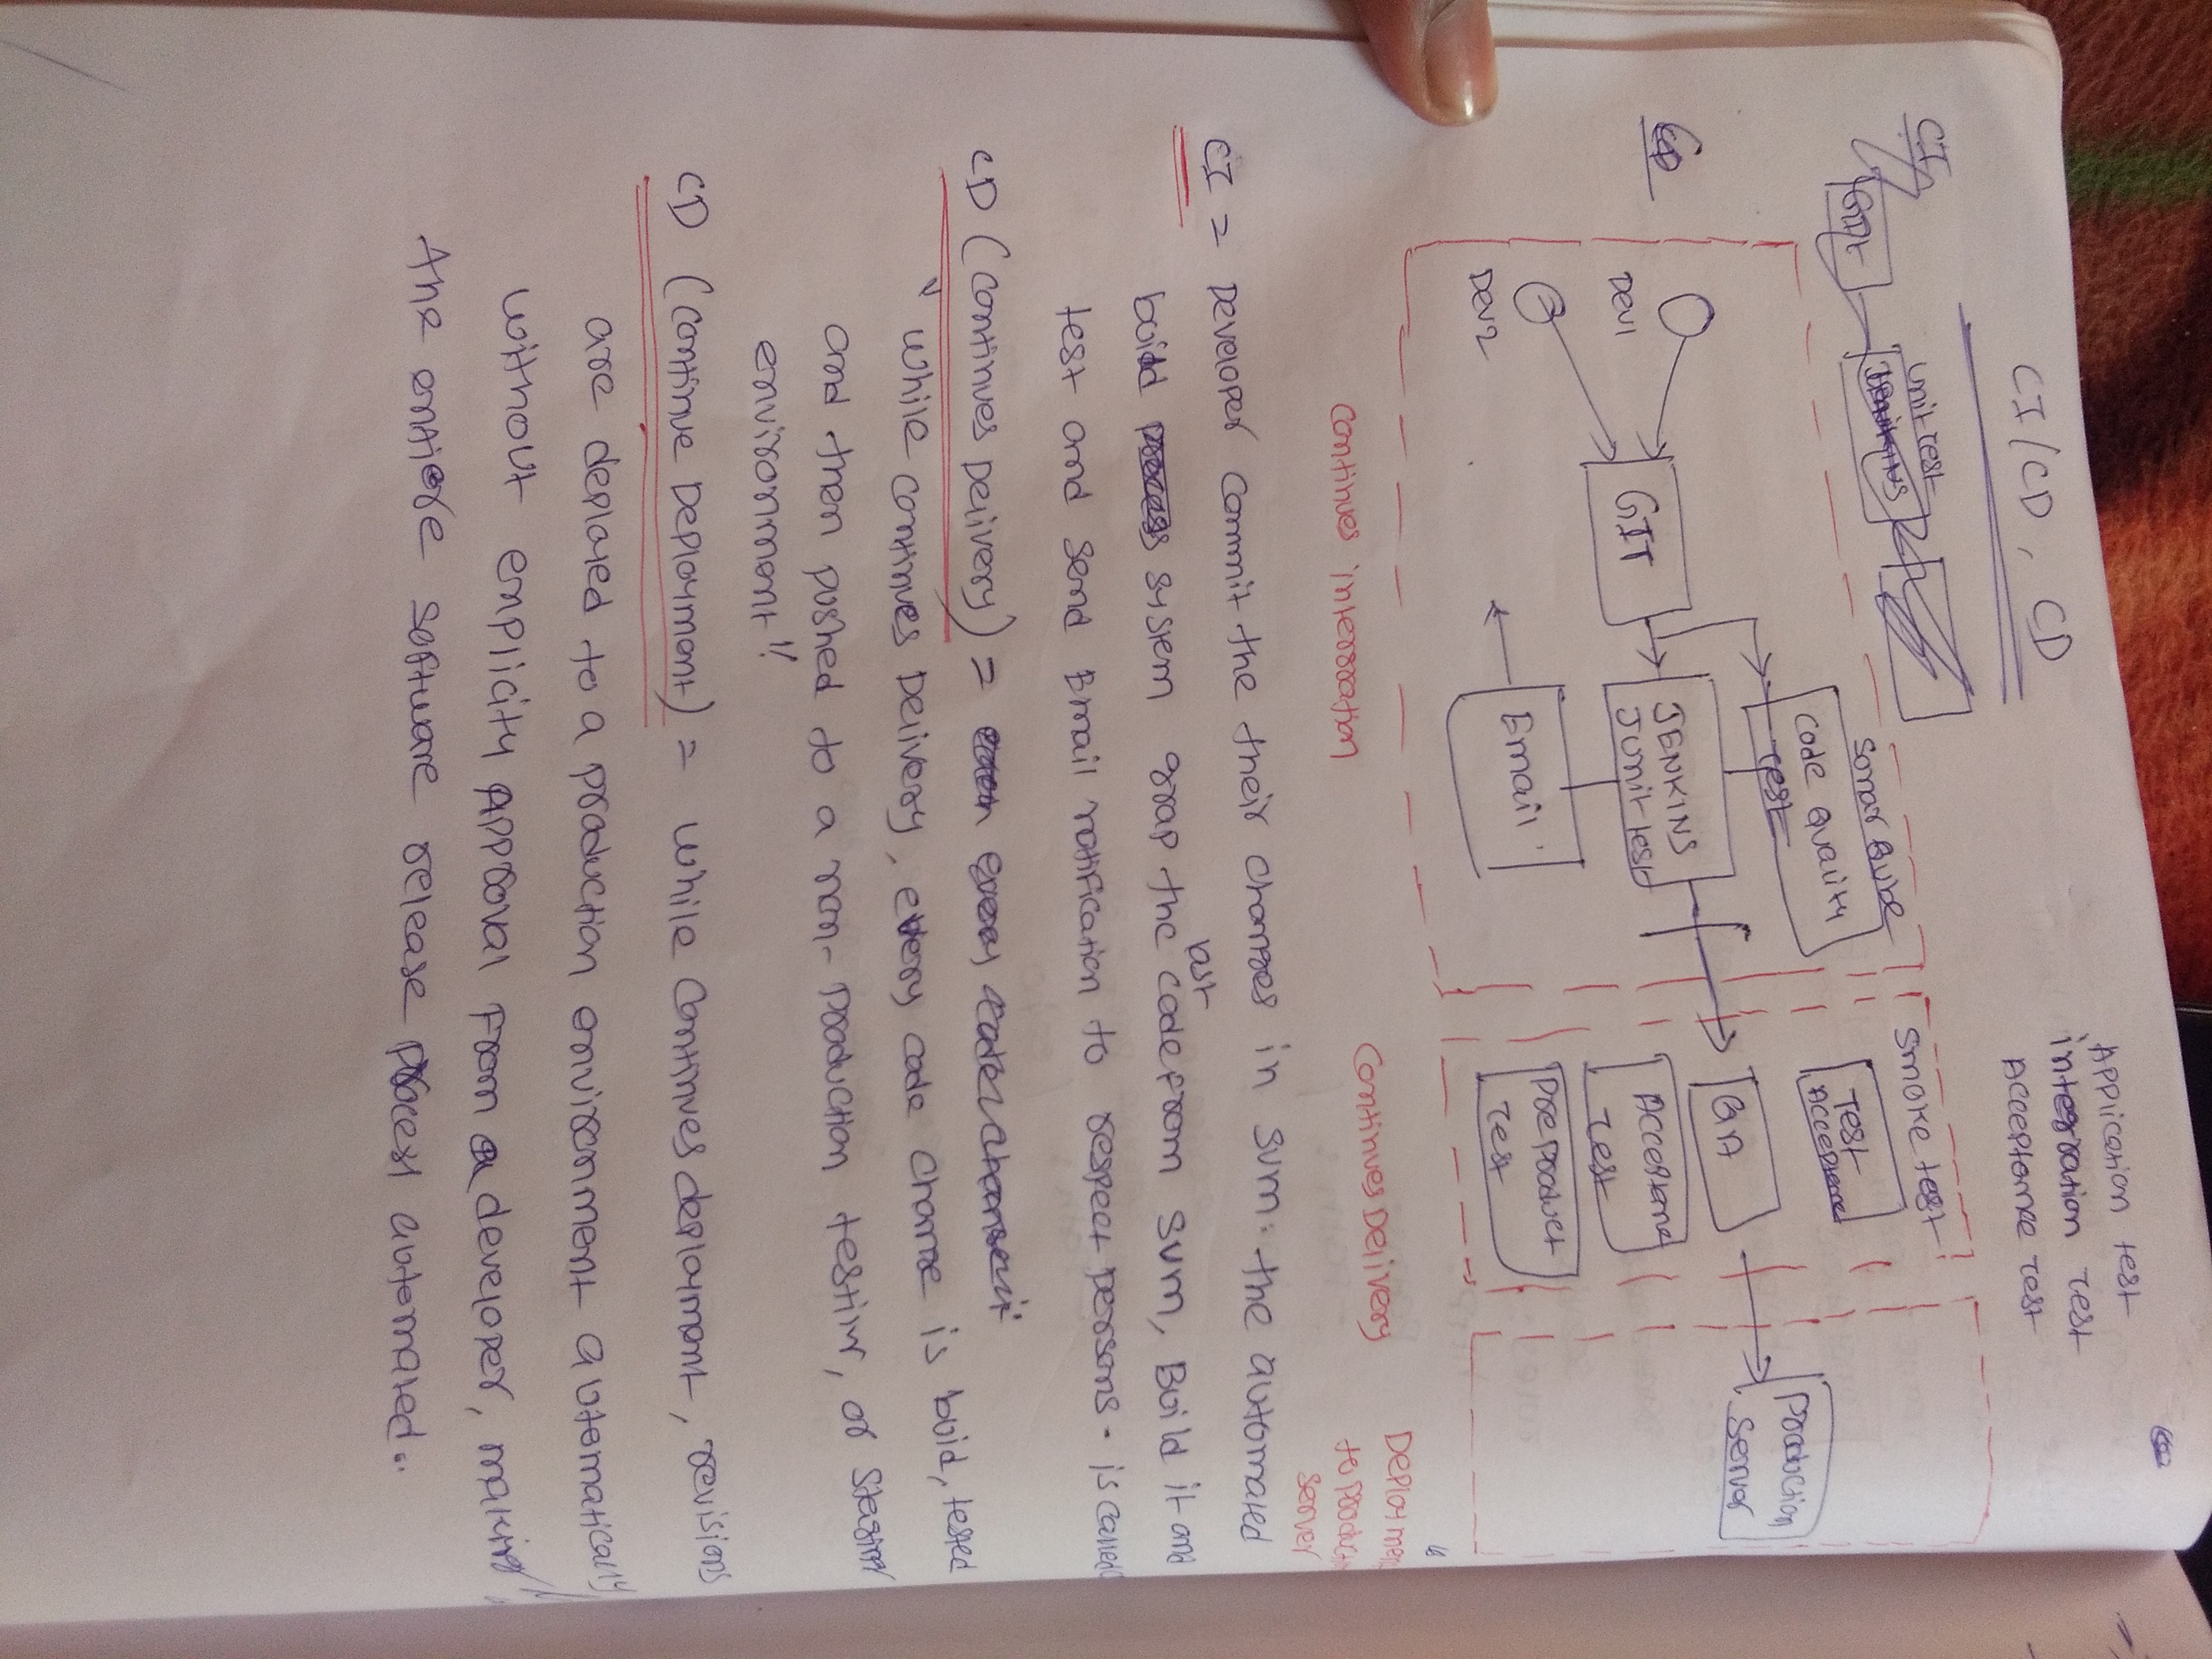 Application test
integration Test
Acceptance Test
CI/CD, CD
CI
unit Test
GIT
JENKINS
Smoke test
Sonar Qube
Code Quality
Test
Test
Acceptance
Production
Server
QA
CD
DEV1
GIT
JENKINS
JUnit test
Acceptance
Test
DEV2
Email
PreProduct
Test
Continues interration
Continues Delivery
Deployment
to Production
Server
CI = Developer commit the their changes in sum. the automated
last
buid process system grap the code from sum, Build it and
test and send Email notification to respect persons. is called
CD (Continues Delivery) = every code change
While continues Delivery, every code change is buid, tested
and then pushed to a non-production testing, or staging
environment"
CD (Continue Deployment) = While Continues deployment, revisions
are deployed to a production environment automatically
without explicity Approval From a developer, making
the entiere software release process automated..